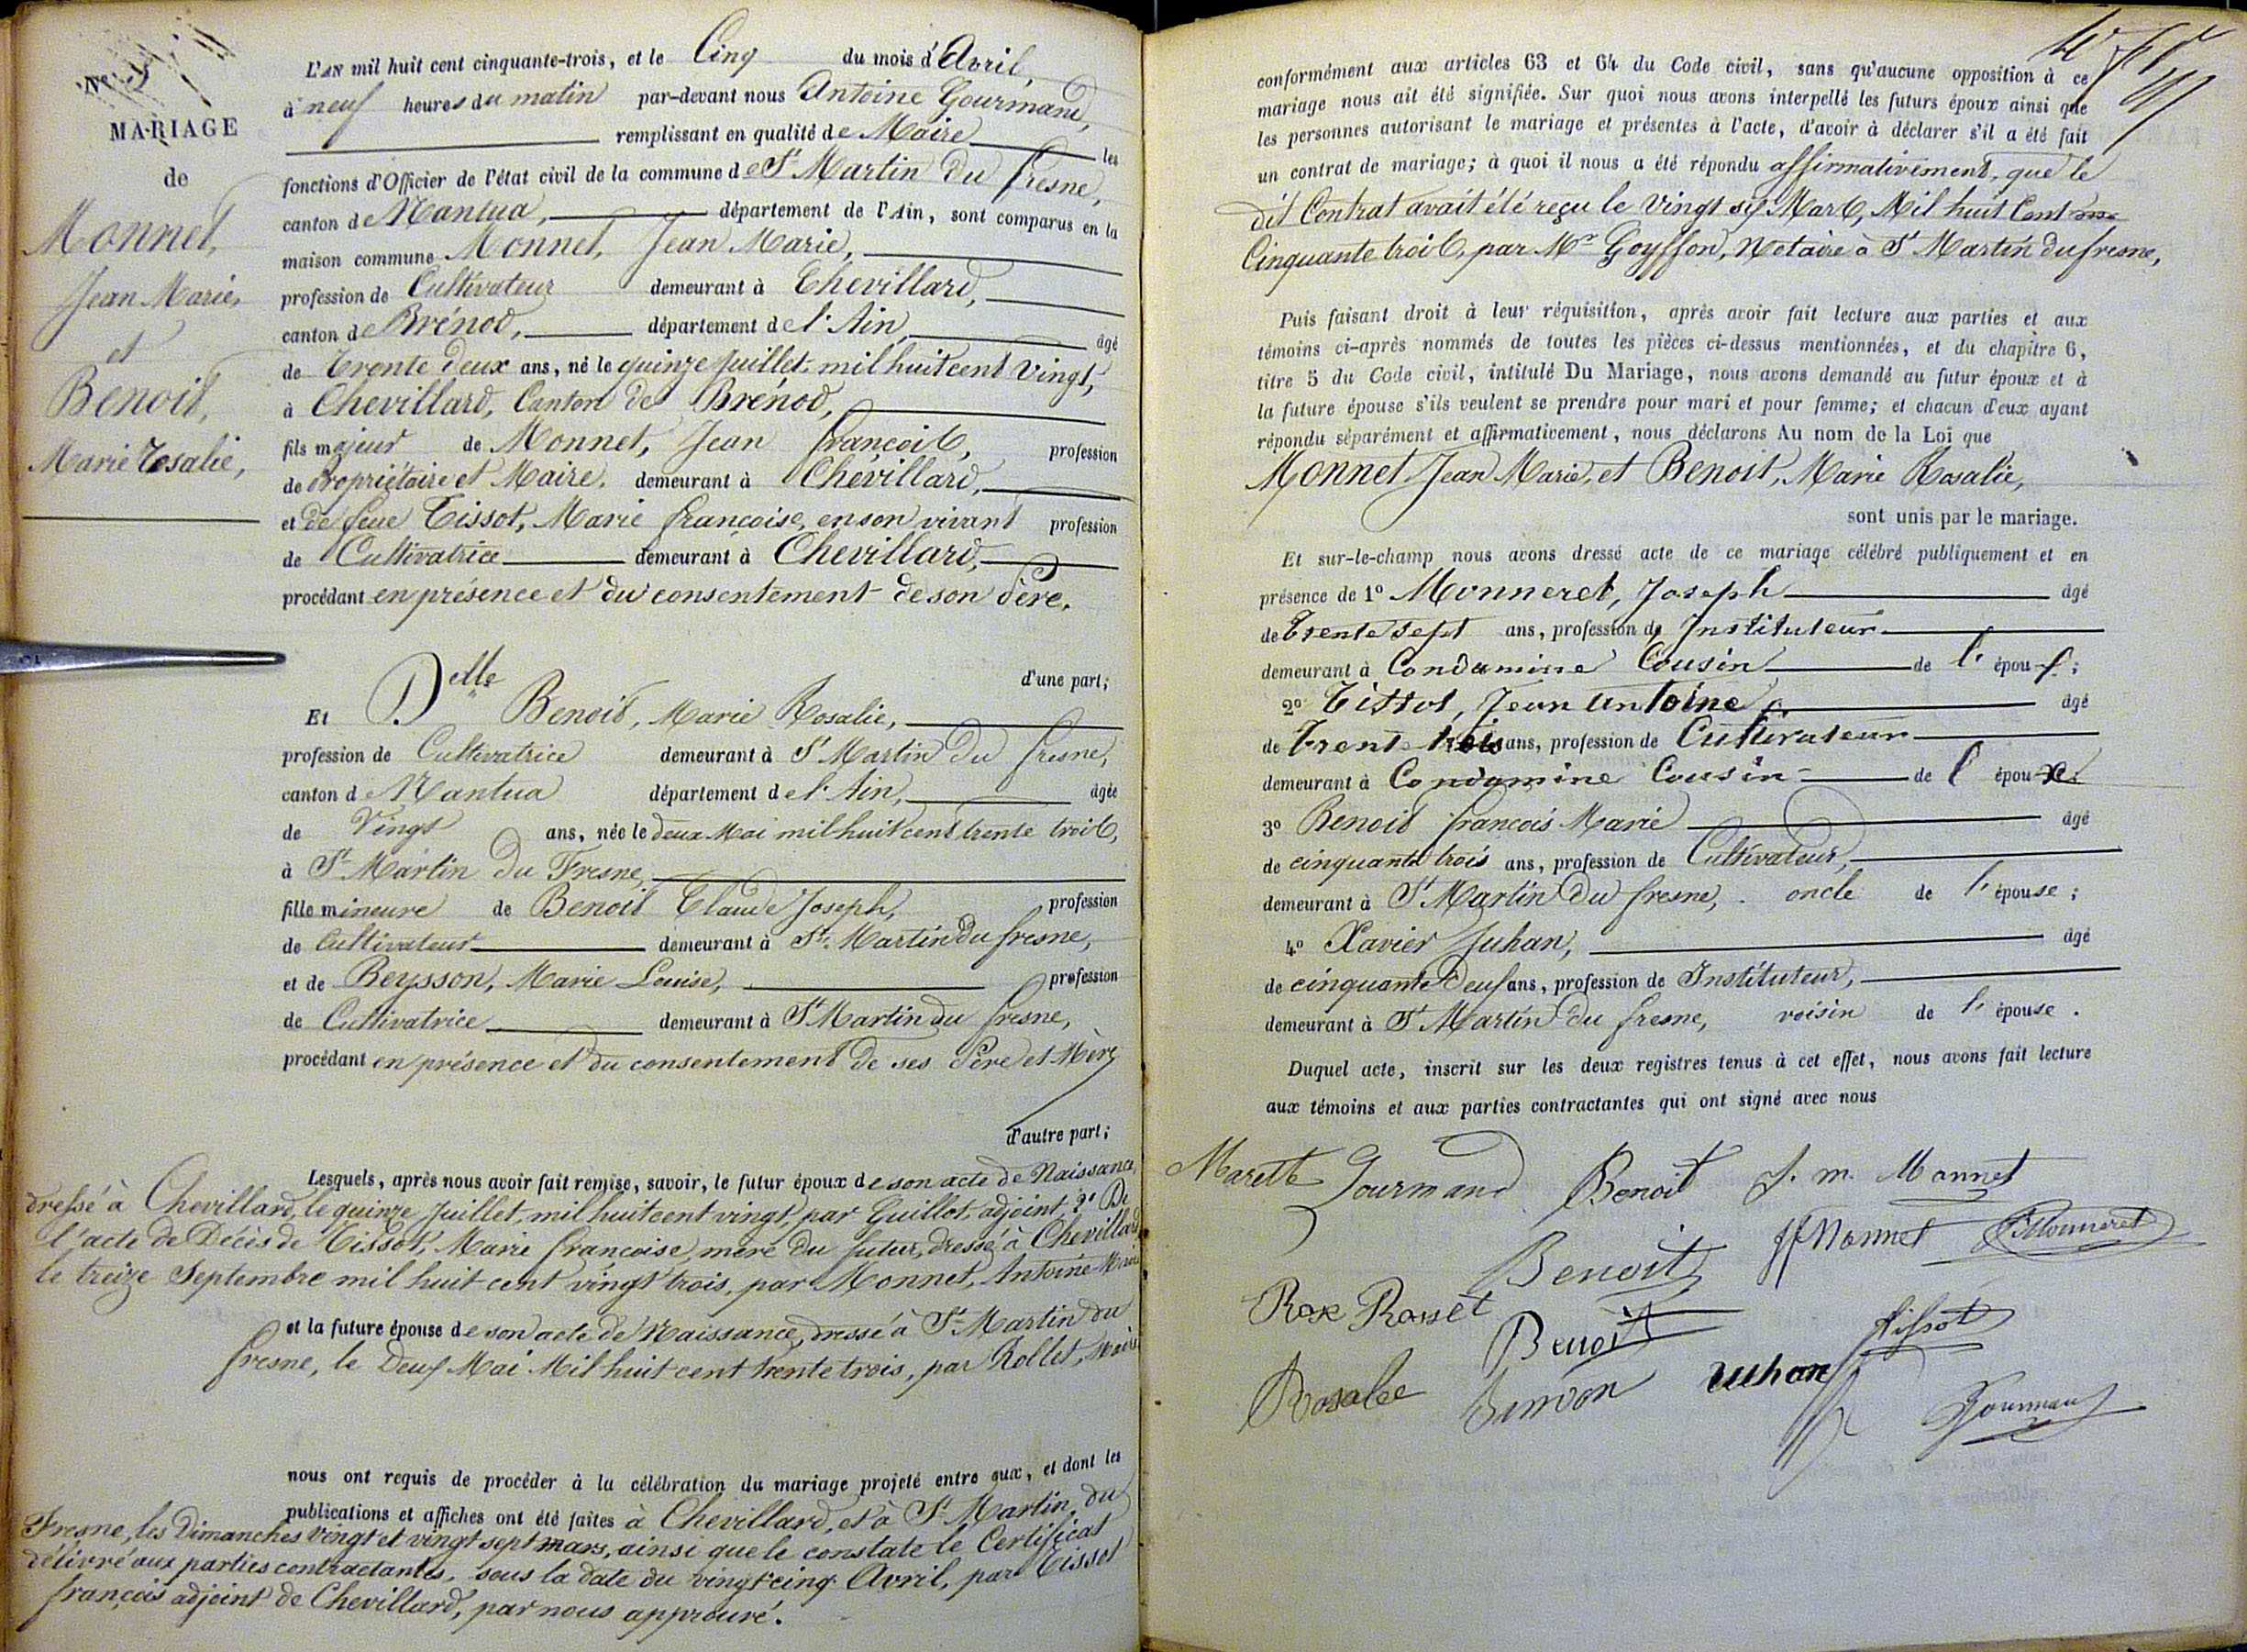 N°
MARIAGE
de
Monnet,
Jean Marie,
et
Benoit,
Marie Rosalie,
L'AN mil huit cent cinquante-trois, et le Cinq du mois d'Avril,
à neuf heures du matin par-devant nous Antoine Gourmand,
remplissant en qualité de Maire les
fonctions d'Officier de l'état civil de la commune de St Martin du fresne,
canton de Nantua, département de l'Ain, sont comparus en la
maison commune Monnet, Jean Marie,
profession de Cultivateur demeurant à Chevillard,
canton de Brénod, département de l'Ain, âgé
de trente deux ans, né le quinze juillet mil huit cent vingt,
à Chevillard, Canton de Brénod,
fils majeur de Monnet, Jean françois, profession
de Propriétaire et Maire, demeurant à Chevillard,
et de feue Tissot, Marie françoise, en son vivant profession
de Cultivatrice demeurant à Chevillard,
procédant en présence et du consentement de son Père.
d'une part;
Et Delle Benoit, Marie Rosalie,
profession de Cultivatrice demeurant à St Martin du fresne,
canton de Nantua département de l'Ain, âgée
de Vingt ans, née le deux Mai mil huit cent trente trois,
à St Martin du Fresne,
fille mineure de Benoit Claude Joseph, profession
de Cultivateur demeurant à St Martin du fresne,
et de Beysson, Marie Louise, profession
de Cultivatrice demeurant à St Martin du fresne,
procédant en présence et du consentement de ses Père et Mère
d'autre part;
Lesquels, après nous avoir fait remise, savoir, le futur époux de son acte de Naissance,
dressé à Chevillard, le quinze Juillet, mil huit cent vingt, par Guillot, adjoint, 2° De
l'acte de Décès de Tissot, Marie françoise, mère du futur, dressé à Chevillard
le treize Septembre mil huit cent vingt trois, par Monnet, Antoine Maire
et la future épouse de son acte de Naissance, dressé à St Martin du
fresne, le Deux Mai Mil huit cent trente trois, par Rollet, Maire
nous ont requis de procéder à la célébration du mariage projeté entre eux, et dont les
publications et affiches ont été faites à Chevillard, et à St Martin du
Fresne, les Dimanches vingt et vingt sept mars, ainsi que le constate le Certificat
délivré aux parties contractantes, sous la date du vingt cinq Avril, par Tissot
françois adjoint de Chevillard, par nous approuvé.
conformément aux articles 63 et 64 du Code civil, sans qu'aucune opposition à ce
mariage nous ait été signifiée. Sur quoi nous avons interpellé les futurs époux ainsi que
les personnes autorisant le mariage et présentes à l'acte, d'avoir à déclarer s'il a été fait
un contrat de mariage; à quoi il nous a été répondu affirmativement, que le
dit Contrat avait été reçu le Vingt six Mars, Mil huit Cent
Cinquante trois, par Me Goyffon, Notaire à St Martin du fresne,
Puis faisant droit à leur réquisition, après avoir fait lecture aux parties et aux
témoins ci-après nommés de toutes les pièces ci-dessus mentionnées, et du chapitre 6,
titre 5 du Code civil, intitulé Du Mariage, nous avons demandé au futur époux et à
la future épouse s'ils veulent se prendre pour mari et pour femme; et chacun d'eux ayant
répondu séparément et affirmativement, nous déclarons Au nom de la Loi que
Monnet Jean Marie, et Benoit, Marie Rosalie,
sont unis par le mariage.
Et sur-le-champ nous avons dressé acte de ce mariage célébré publiquement et en
présence de 1° Monneret, Joseph âgé
de trente sept ans, profession de Instituteur
demeurant à Condamine Cousin de l'époux;
2° Tissot, Jean antoine âgé
de trente trois ans, profession de Cultivateur
demeurant à Condamine Cousin de l'époux
3° Benoit françois Marie âgé
de cinquante trois ans, profession de Cultivateur,
demeurant à St Martin du fresne, oncle de l'épouse;
4° Xavier Juhan, âgé
de cinquante Deux ans, profession de Instituteur,
demeurant à St Martin du fresne, voisin de l'épouse.
Duquel acte, inscrit sur les deux registres tenus à cet effet, nous avons fait lecture
aux témoins et aux parties contractantes qui ont signé avec nous
Gourmand Benoit J. m. Monnet
Benoit Monnet Monneret
Benoit Tissot
Rosalie Juhan Gourmand